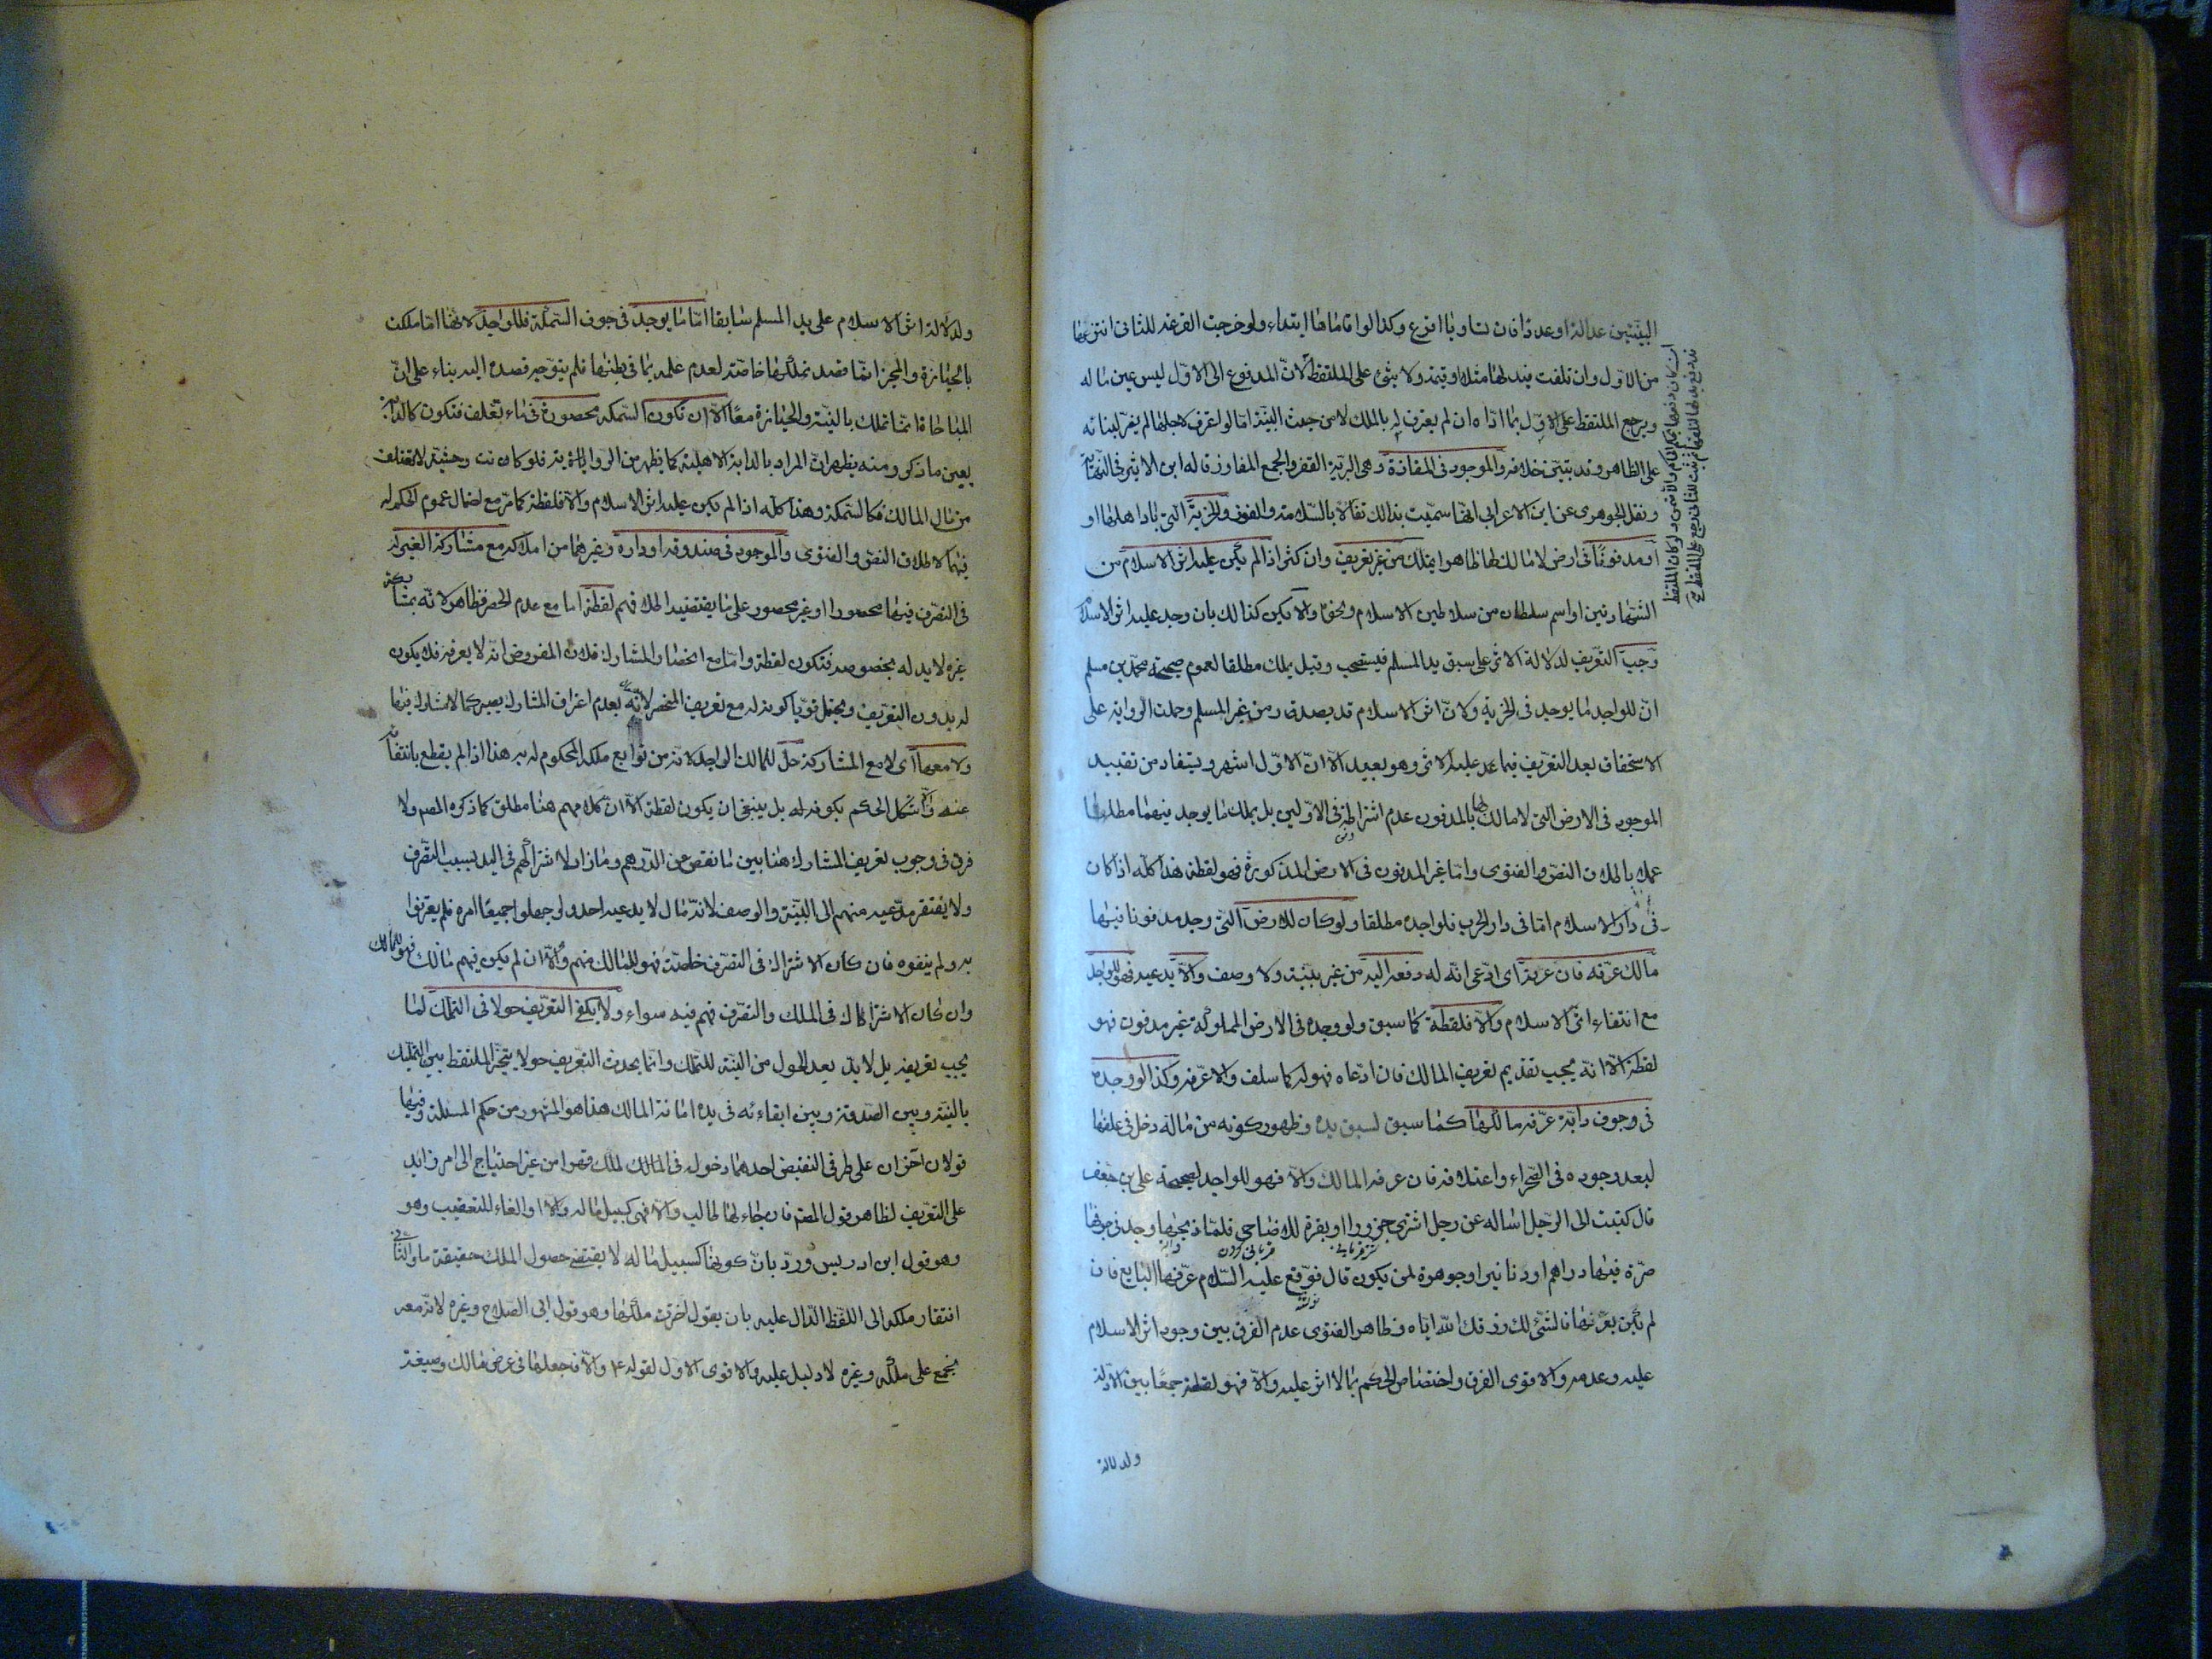 البينتين عدالة او عددا فان تساويا اقرع وكذا لو اقاماها ابتداء ولو خرجت القرعة للثانى انتزعها
من الاول وان تلفت فبدلها مثلا او قيمة ولا شئ على الملتقط لان المدفوع الى الاول ليس عين ماله
ويرجع الملتقط على الاول بما اداه ان لم يعترف له بالملك لا من حيث البينة اما لو اعترف لاجلها لم يضر لبنائه
على الظاهر وقد تبين خلافه والموجود فى المفازة وهى البرية القفر والجمع المفاوز قاله ابن الاثير فى النهاية
ونقل الجوهرى عن ابن الاعرابى انها سميت بذلك تفألا بالسلامة والفوز والخربة التى باد اهلها او
او مدفونا فى ارض لا مالك لها ظاهرا يتملك من غير تعريف وان كثر اذا لم يكن عليه اثر الاسلام من
الشهادتين او اسم سلطان من سلاطين الاسلام ونحوه والا يكن كذلك بان وجد عليه اثر الاسلام
وجب التعريف لدلالة الاثر على سبق يد المسلم فيستصحب وقيل يملك مطلقا لعموم صحيحة محمد بن مسلم
ان للواجد ما يوجد فى الخربة ولان اثر الاسلام قد يصدر من غير المسلم وحملت الرواية على
الاستحقاق بعد التعريف فيما عليه الاثر وهو بعيد الا ان الاول اشهر ويستفاد من تقييد
الموجود فى الارض التى لا مالك لها بالمدفون عدم اشتراطه فى الاولين بل يملك ما يوجد فيهما مطلقا
عملا باطلاق النص والفتوى واما غير المدفون فى الارض المذكورة فهو لقطة هذا كله اذا كان
فى دار الاسلام اما فى دار الحرب فلواجده مطلقا ولو كان للارض التى وجد مدفونا فيها
مالك عرفه فان عرفه اى ادعى انه له دفعه اليه من غير بينة ولا وصف والا يدعيه فهو للواجد
مع انتفاء اثر الاسلام والا فلقطة كما سبق ولو وجده فى الارض المملوكة غير مدفون فهو
لقطة الا انه يجب تقديم تعريف المالك فان ادعاه فهو له كما سلف والا عرفه وكذا لو وجده
فى جوف دابة عرفه مالكها كما سبق لسبق يده وظهور كونه من ماله دخل فى علفها
لبعد وجوده فى الصحراء واعتلافه فان عرفه المالك والا فهو للواجد لصحيحة على بن جعفر
قال كتبت الى الرجل اسأله عن رجل اشترى جزورا او بقرة للاضاحى فلما ذبحها وجد فى جوفها
صرة فيها دراهم او دنانير او جوهرة لمن يكون قال فوقع عليه السلام عرفها البايع فان
لم يكن يعرفها فالشئ لك رزقك الله اياه وظاهر الفتوى عدم الفرق بين وجود اثر الاسلام
عليه وعدمه والاقوى الفرق واختصاص الحكم بما لا اثر عليه والا فهو لقطة جمعا بين الادلة
ولدلالة
ولدلالة اثر الاسلام على يد المسلم سابقا اما ما يوجد فى جوف السمكة فللواجد لانها انما ملكت
بالحيازة والمحيز انما قصد تملكها خاصة لعدم علمه بما فى بطنها فلم يتوجه قصده اليه بناء على ان
المباحات انما تملك بالنية والحيازة معا الا ان تكون السمكة محصورة فى ماء تعلف فتكون كالدابة
بعين ما ذكر ومنه يظهر ان المراد بالدابة الاهلية كما يظهر من الرواية فلو كانت وحشية لا تعتلف
من مال المالك فكالسمكة وهذا كله اذا لم يكن عليه اثر الاسلام والا فلقطة كما مر مع احتمال عموم الحكم له
فيهما لاطلاق النص والفتوى والموجود فى صندوقه او داره وغيرهما من املاكه مع مشاركة الغير له
فى التصرف فيهما محصورا او غير محصور على ما يقتضيه اطلاقهم لقطة اما مع عدم الحصر فظاهر لانه بمشاركة
غيره لا يد له بخصوصه فتكون لقطة واما مع انحصار المشارك فلان المفروض انه لا يعرفه فلا يكون
له بدون التعريف ويحتمل قويا كونه له مع تعريف المنحصر لانه بعدم اعتراف المشارك يصير كما لا مشارك فيه
ولا معها اى لا مع المشاركة حل للمالك الواجد لانه من توابع ملكه المحكوم له به هذا اذا لم يقطع بانتفائه
عنه والا اشكل الحكم بكونه له بل ينبغى ان يكون لقطة الا ان كلامهم هنا مطلق كما ذكره المصـ ولا
فرق فى وجوب تعريف المشارك هنا بين ما نقص عن الدرهم وما زاد لاشتراكهم فى اليد بسبب التصرف
ولا يفتقر مدعيه منهم الى البينة والوصف لانه مال لا يدعيه احد ولو جهلوا جميعا امره فلم يعترفوا
به ولم ينفوه فان كان الاشتراك فى التصرف خاصة فهو للمالك منهم والا ان لم يكن فيهم مالك فهو للمالك
وان كان الاشتراك فى الملك والتصرف فهم فيه سواء ولا يكفى التعريف حولا فى التملك لما
يجب تعريفه بل لا بد بعد الحول من النية للتملك وانما يحدث التعريف حولا يتخير الملتقط بين التملك
بالنية وبين الصدقة وبين ابقائه فى يده امانة المالك هذا هو المشهور من حكم المسئلة وفيها
قولان آخران على طرفى النقيض احدهما دخوله فى الملك قهرا من غير احتياج الى امر زايد
على التعريف لظاهر قول الصـ فان جاء لها طالب والا فهى كسبيل ماله والفاء للتعقيب وهو
وهو قول ابن ادريس ورد بان كونها كسبيل ماله لا يقتضى حصول الملك حقيقة والثانى
افتقار ملكه الى اللفظ الدال عليه بان يقول اخترت ملكها وهو قول ابى الصلاح وغيره لانه معه
مجمع على ملكه وغيره لا دليل عليه والاقوى الاول لقوله ع والا فاجعلها فى عرض مالك وصيغة